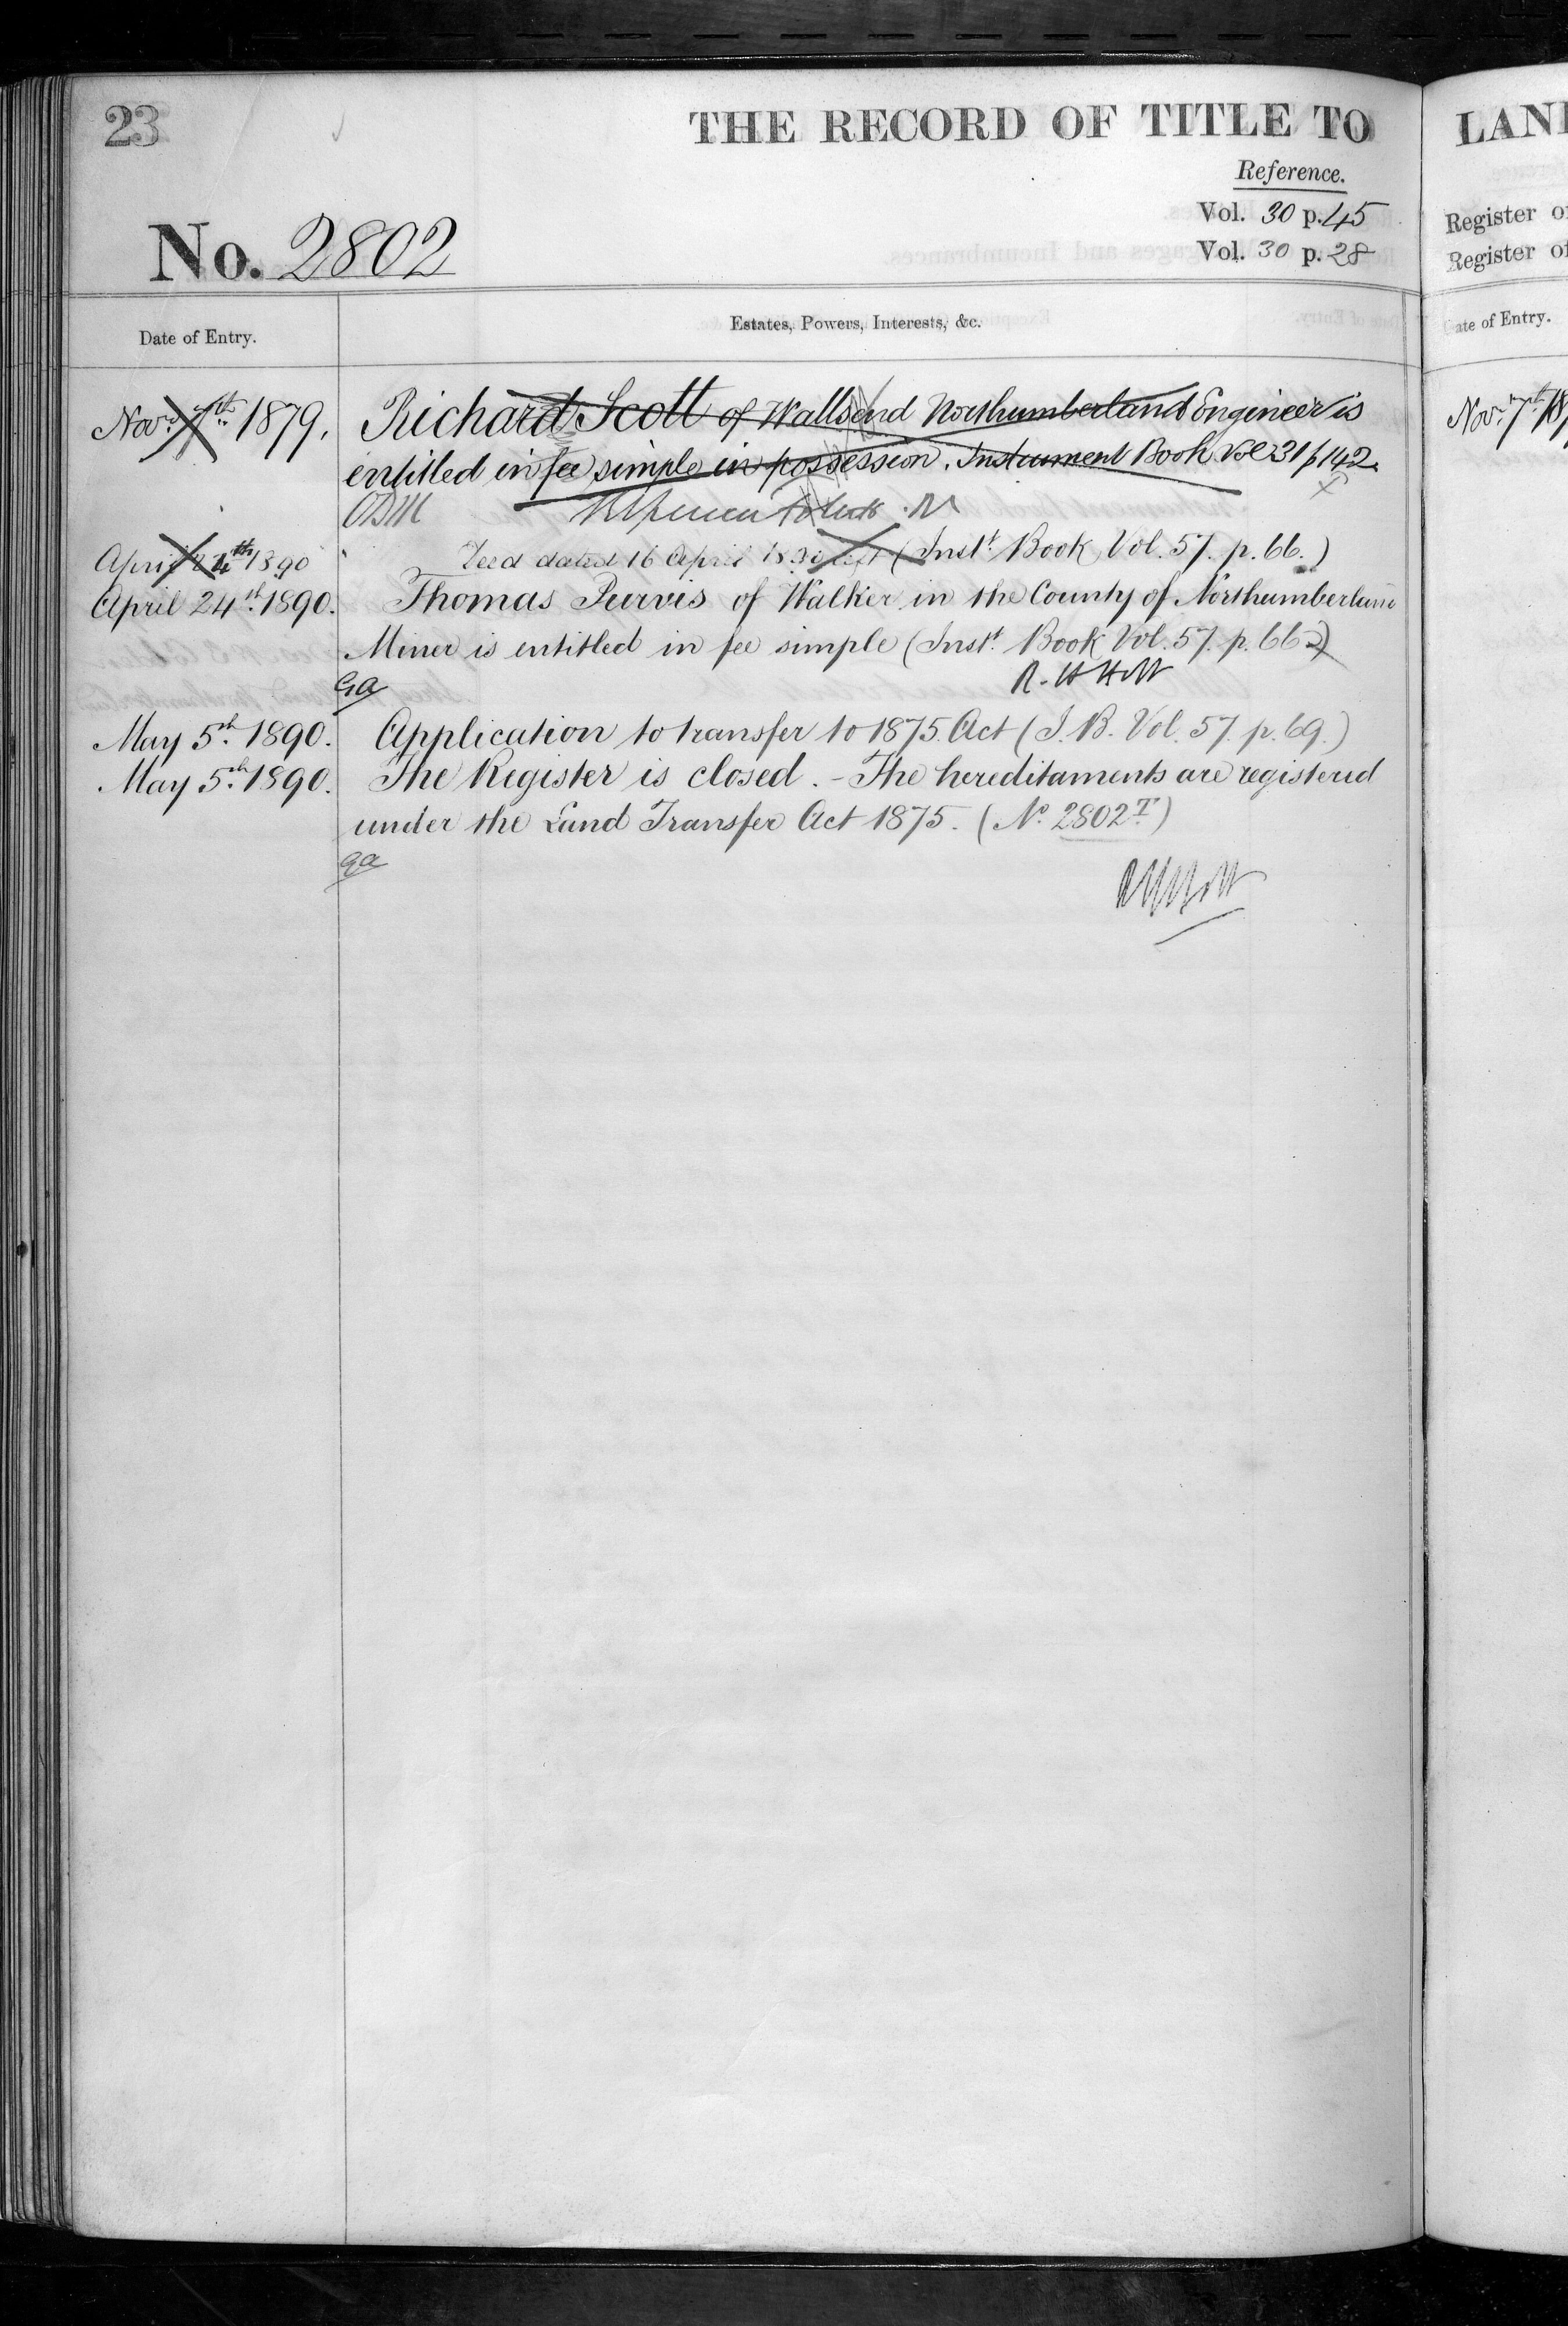 23
THE RECORD OF TITLE TO
Reference.
Vol. 30 p. 45
No. 2802
Vol. 30 p. 28
Date of Entry.
Estates, Powers, Interests, &c.
Novr. 7th. 1879.
Richard Scott of Wallsend Northumberland Engineer is
entitled in fee simple in possession. Instrument Book Vol 31 p 142.
April 24th 1890
Deed dated 16 April 1890 left (Instt. Book Vol. 57. p. 66.)
April 24th. 1890.
Thomas Purvis of Walker in the County of Northumberland
Miner is entitled in fee simple (Instt. Book Vol. 57. p. 66.)
GA
R. H Holt
May 5th. 1890.
Application to transfer to 1875. Act (I.B. Vol. 57. p. 69.)
May 5th. 1890.
The Register is closed. - The hereditaments are registered
under the Land Transfer Act 1875. (No. 2802T)
GA
LAN
Register o
Register of
Date of Entry.
Novr. 7th. 18